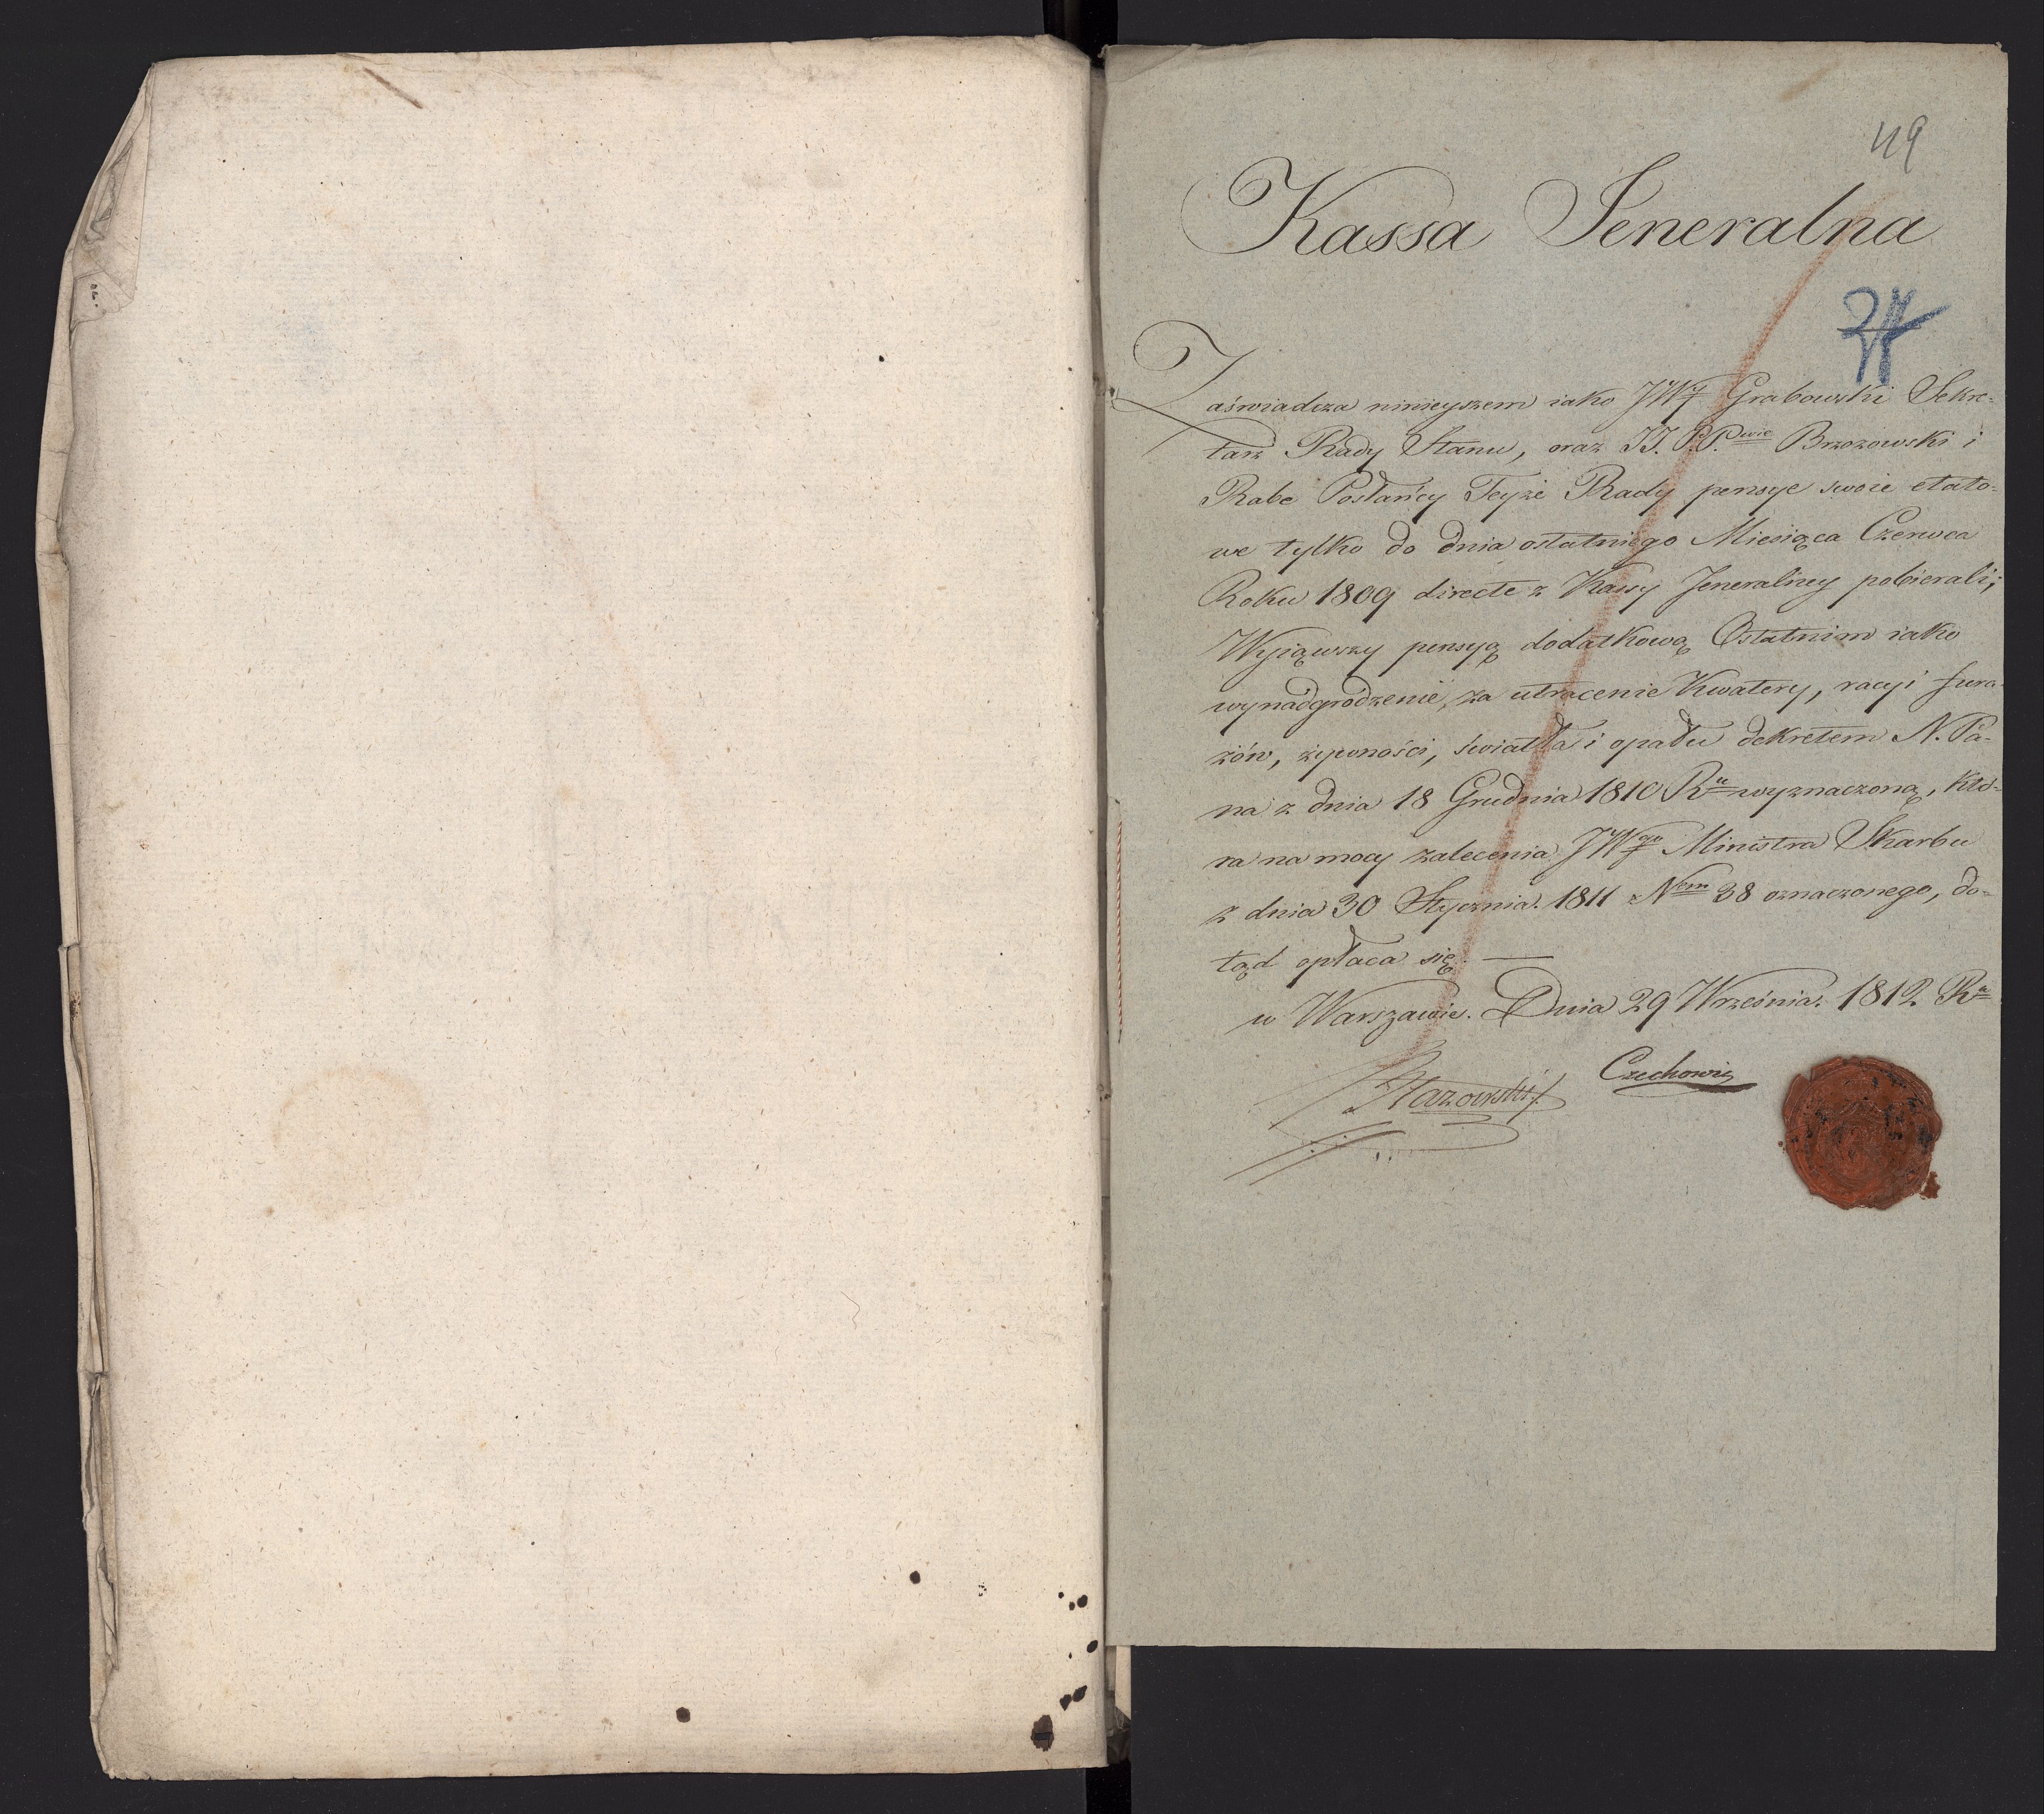 49
Kassa Jeneralna
Zaświadcza ninieyszem iako JWy Grabowski Sekre-
tarz Rady Stanu, oraz JJ. P.P.wie Brzozowski i
Rabe Posłańcy Teyże Rady pensye swoie etato-
we tylko do dnia ostatniego Miesiąca Czerwca
Roku 1809 directe z Kassy Jeneralney pobierali;
Wyiąwszy pensyą dodatkową Ostatnim iako
wynadgrodzenie, za utracenie Kwatery, racyi fura-
żów, żywności, światła i opału dekretem N. Pa-
na z dnia 18 Grudnia 1810 Ru wyznaczoną, któ-
ra na mocy zalecenia JWgo Ministra Skarbu
z dnia 30 Stycznia. 1811 Nem 38 oznaczonego, do-
tąd opłaca się. —
w Warszawie. Dnia 29 Września. 1812 Ru
Czechowicz